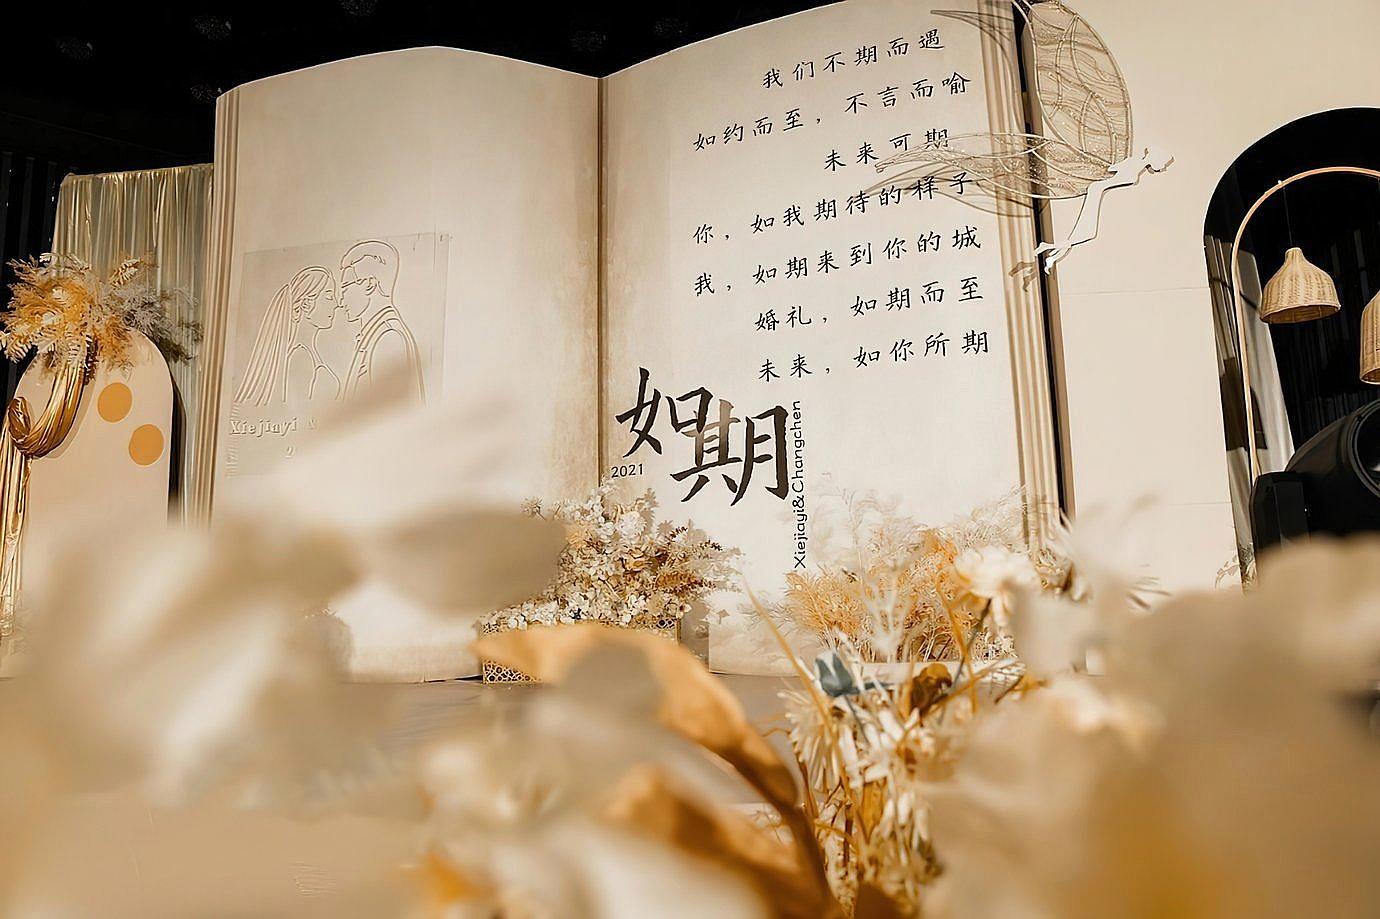 我们不期而遇
如约而至，不言而喻
未来可期
你，如我期待的样子
我，如期来到你的城
婚礼，如期而至
未来，如你所期
如期
2021
Xiejiayi&Changchen
Xiejiayi &
2